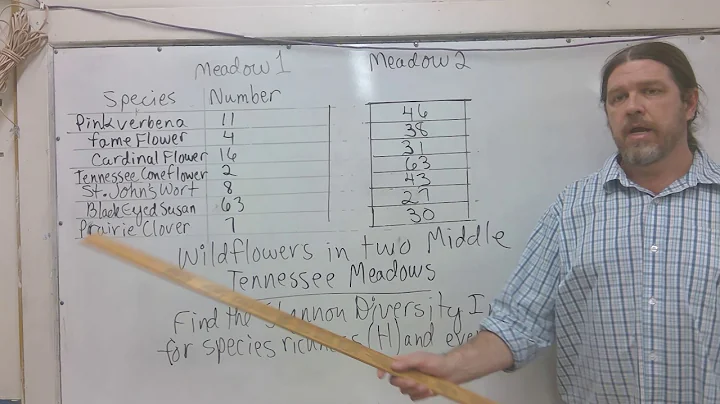 Meadow 1 Meadow 2
Species Number
Pink verbena 11 46
fame Flower 4 38
Cardinal Flower 16 31
Tennessee Coneflower 2 63
St. John's Wort 8 43
Black Eyed Susan 63 27
Prairie Clover 7 30
Wildflowers in two Middle
Tennessee Meadows
Find the Shannon Diversity
for species richness (H) and